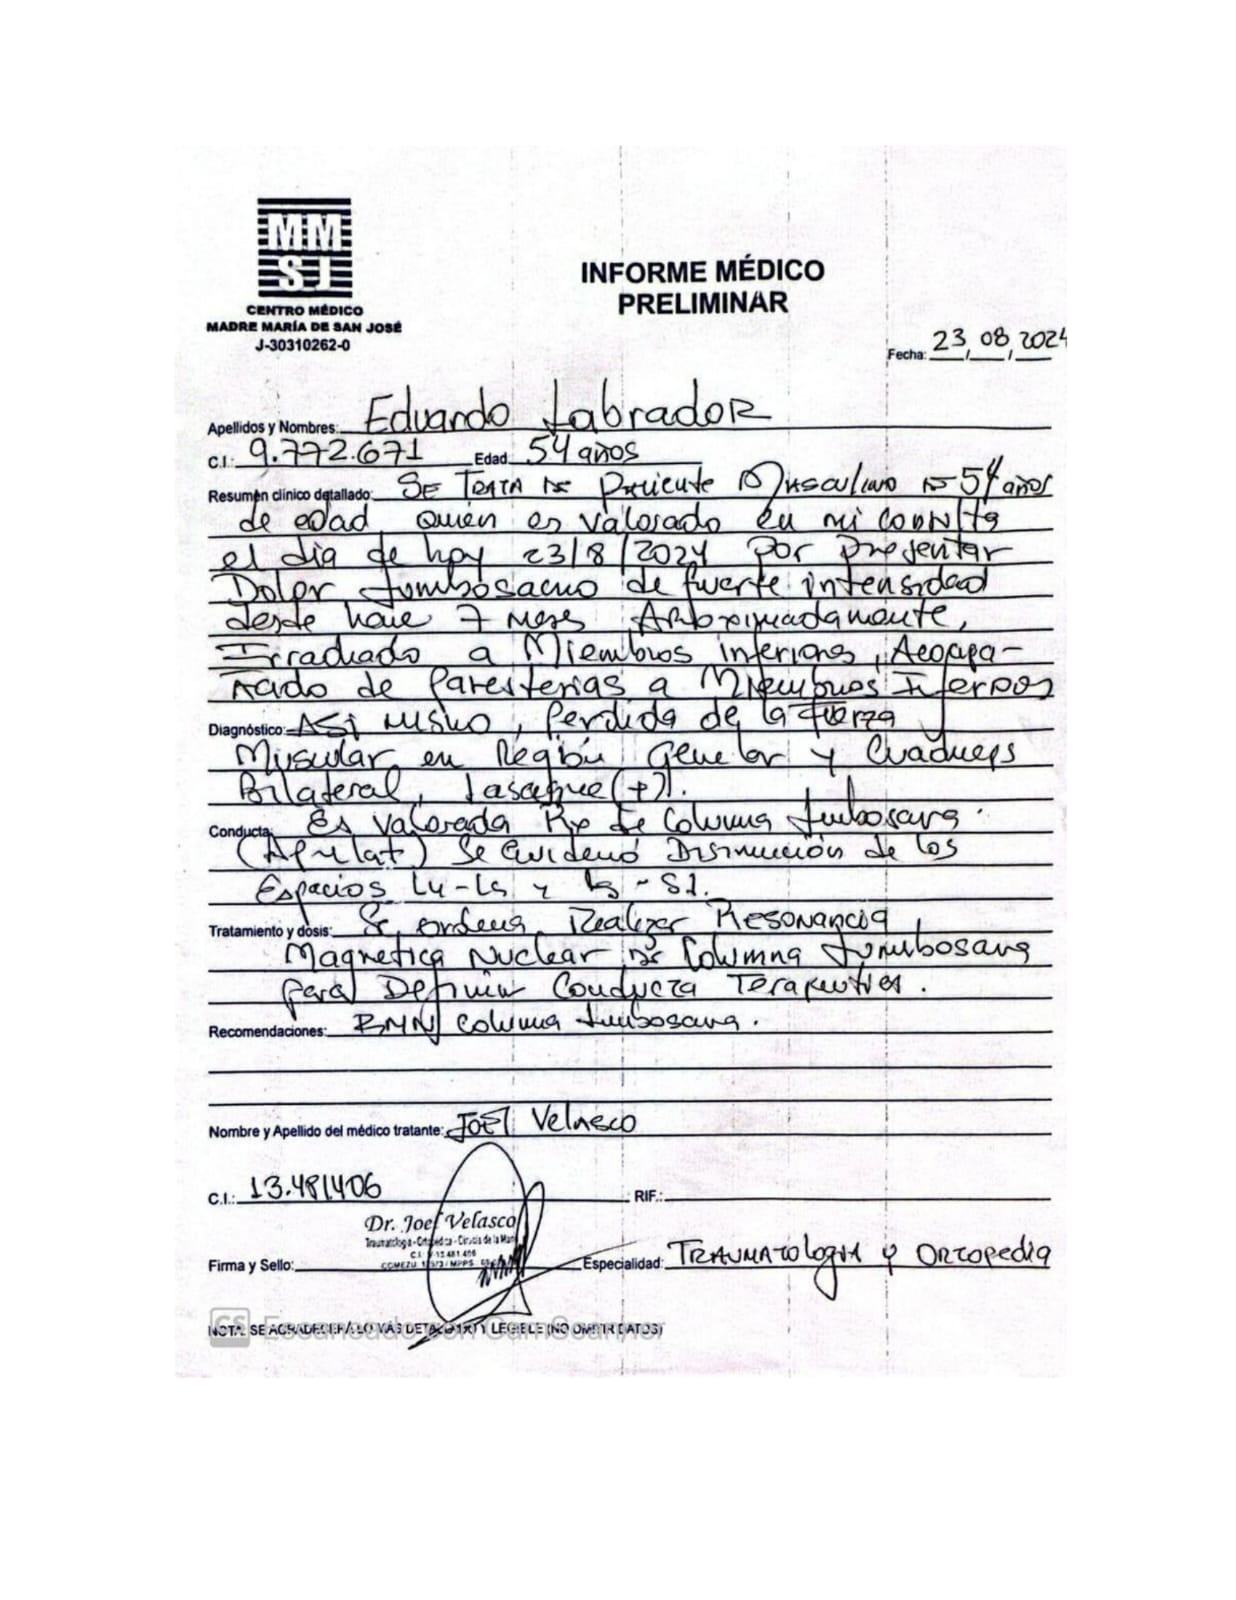 MM
SJ
CENTRO MÉDICO
MADRE MARÍA DE SAN JOSÉ
J-30310262-0
INFORME MÉDICO
PRELIMINAR
Fecha: 23/08/2024
Apellidos y Nombres: Eduardo Labrador
C.I.: 9.772.671 Edad: 54 años
Resumen clínico detallado: SE TRATA DE Paciente Masculino DE 54 años
de edad quien es valorado en mi consulta
el dia de hoy 23/8/2024 por presentar
Dolor Lumbosacro de fuerte intensidad
desde hace 7 meses Aproximadamente,
Irradiado a Miembros inferiores, Acompa-
ñado de Parestesias a Miembros Inferiores
Diagnóstico: ASi mismo, perdida de la fuerza
Muscular en Región Gemelar y Cuadriceps
Bilateral, Lasegue (+).
Conducta: Es valorada Rx de Columna Lumbosacra
(Ap y lat) Se evidenció Disminución de los
Espacios L4-L5 y L5-S1.
Tratamiento y dosis: Se ordena Realizar Resonancia
Magnetica Nuclear DE Columna Lumbosacra
para Definir Conducta Terapeutica.
Recomendaciones: RMN columna Lumbosacra.
Nombre y Apellido del médico tratante: JOEL Velasco
C.I.: 13.481406 RIF.:
Dr. Joel Velasco
Traumatología - Ortopedia - Cirugía de la Mano
C.I. V-13.481.406
COMEZU MPPS
Firma y Sello: Especialidad: TRAUMATOlogia y ORTOpedia
CS Escaneado con CamScanner
NOTA: SE AGRADECE HACERLO MÁS DETALLADO Y LEGIBLE (NO OMITIR DATOS)